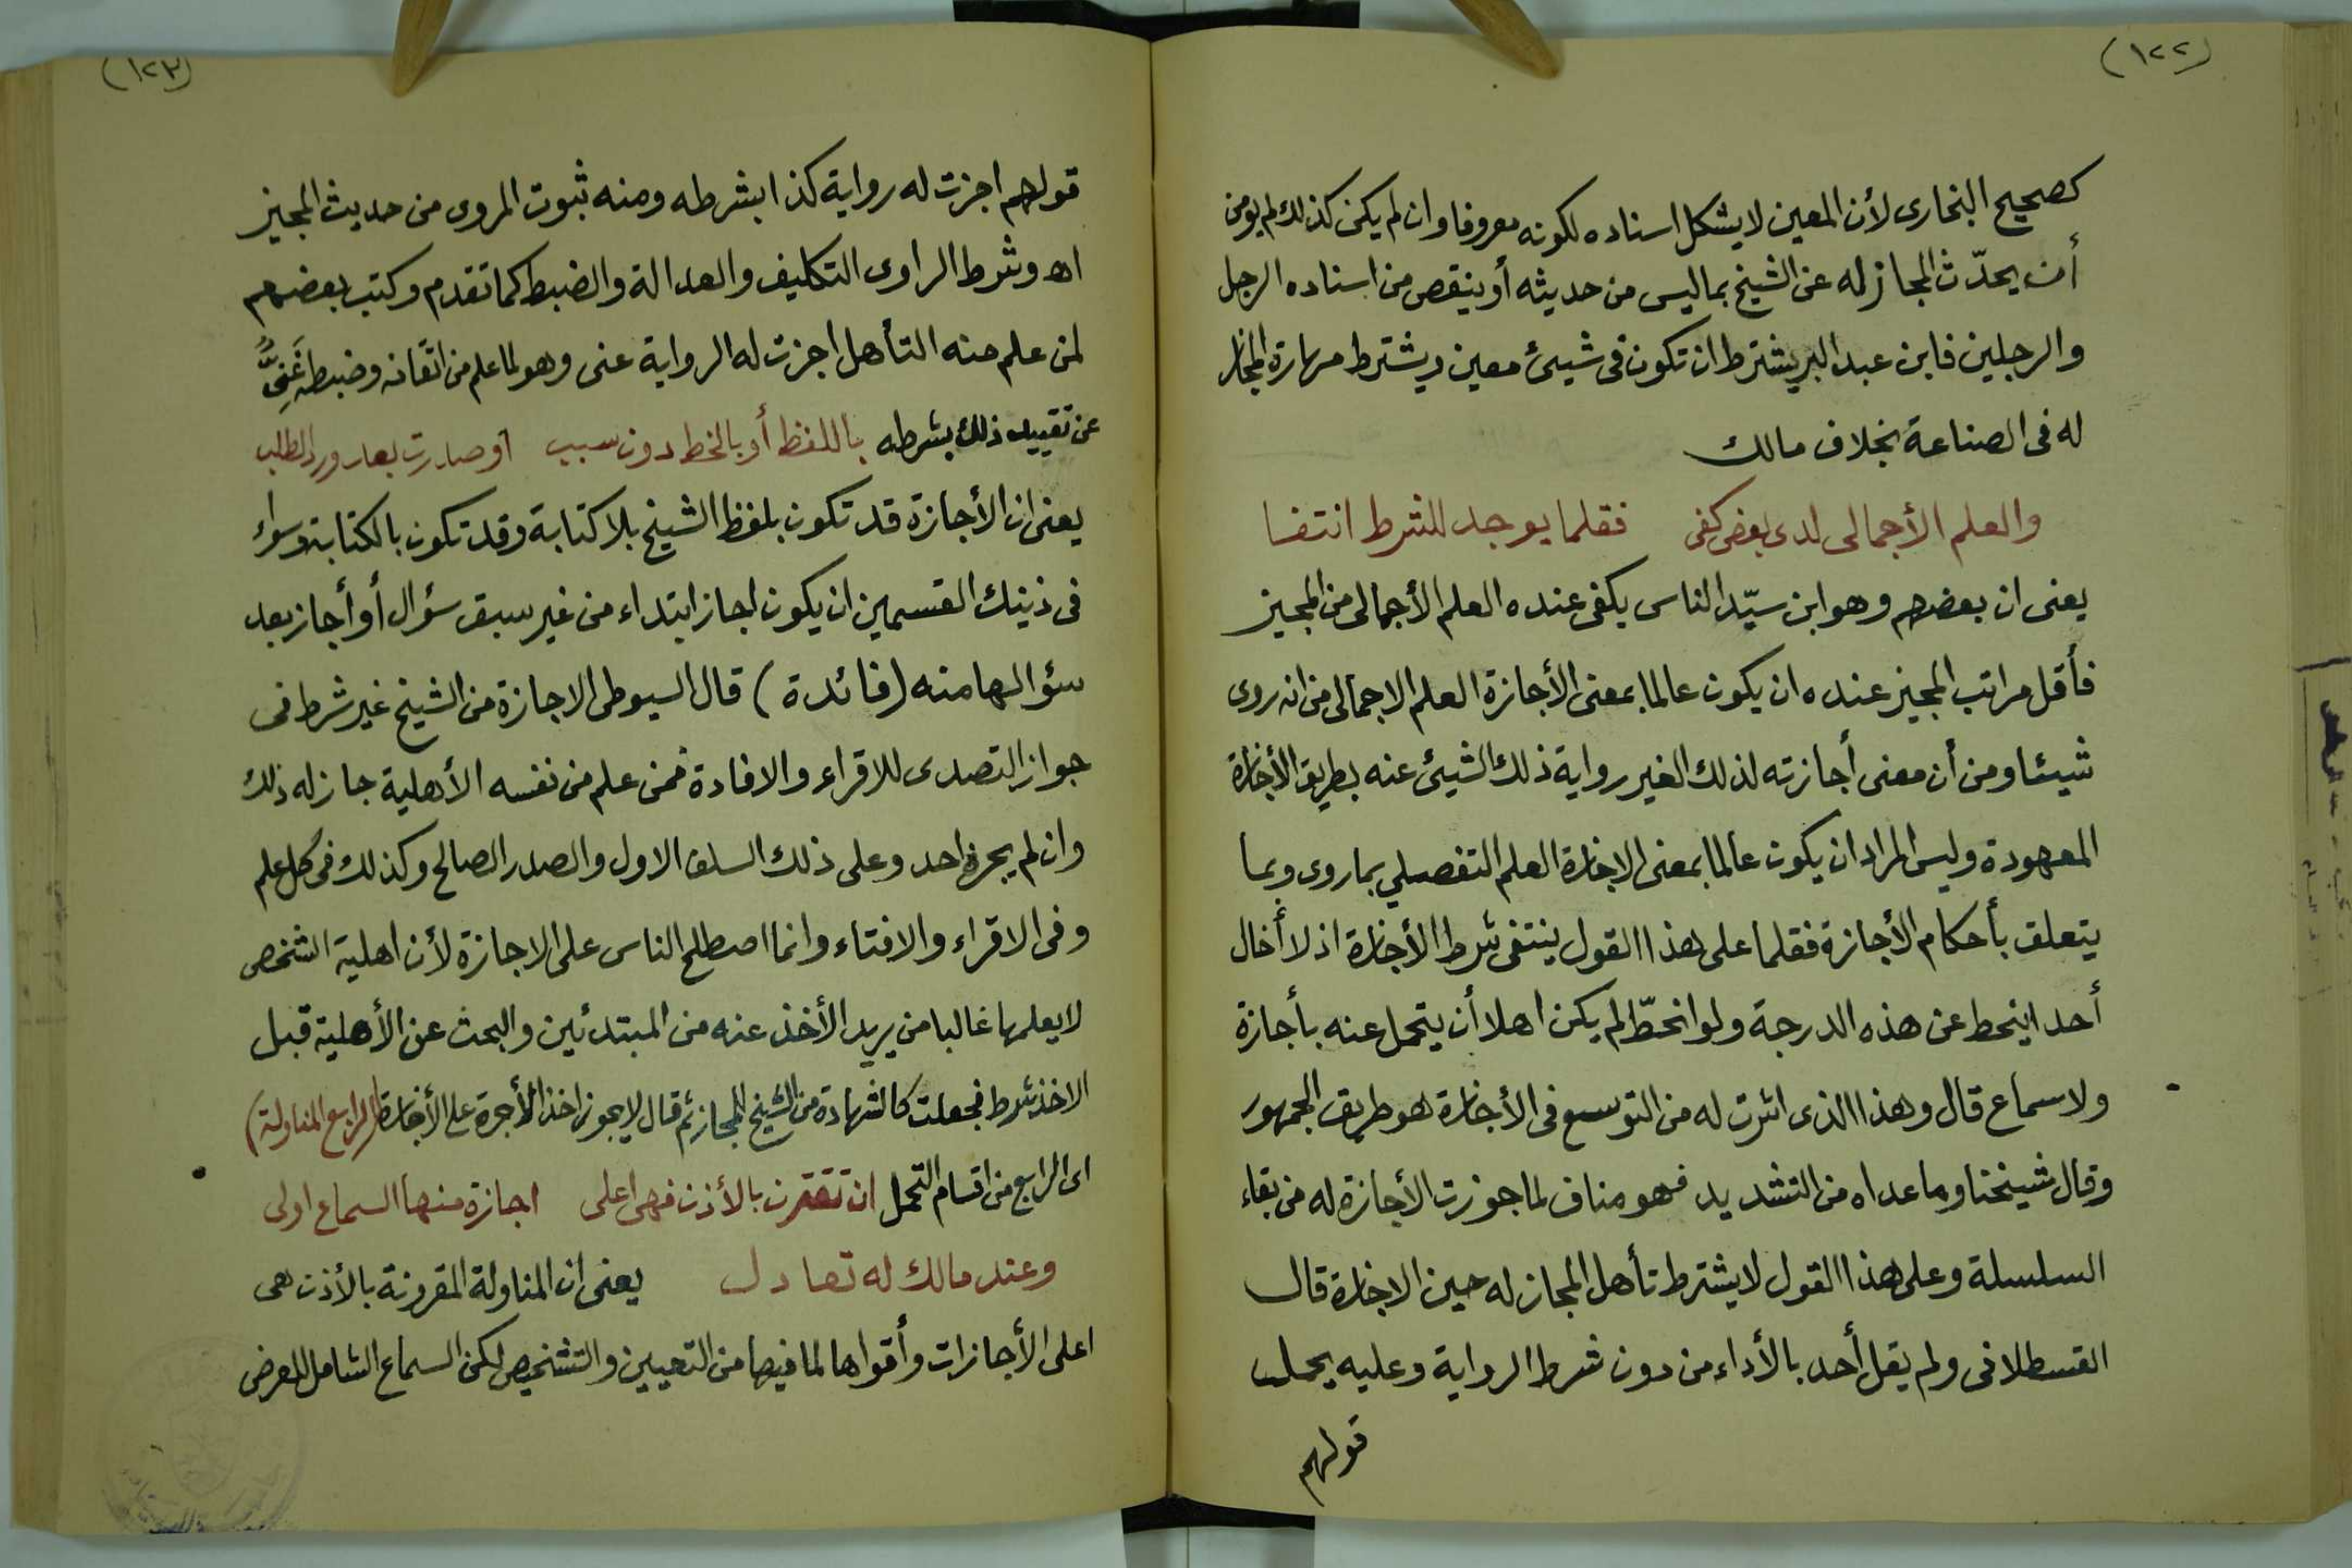 (١٢٢)
كصحيح البخارى لأن المعين لايشكل اسناده لكونه معروفا وان لم يكن كذلك لم يومن
أن يحدّث المجاز له عن الشيخ بماليس من حديثه أو ينقص من اسناده الرجل
والرجلين فابن عبد البر يشترط ان تكون فى شيىٔ معين ويشترط مهارة المجاز
له فى الصناعة بخلاف مالك
والعلم الأجمالى لدى بعض كفى فقلما يوجد للشرط انتفا
يعنى ان بعضهم وهو ابن سيّد الناس يكفى عنده العلم الأجمالى من المجيز
فأقل مراتب المجيز عنده ان يكون عالما بمعنى الأجازة العلم الاجمالى من انه روى
شيئا ومن أن معنى أجازته لذلك الغير رواية ذلك الشيئ عنه بطريق الأجازة
المعهودة وليس المراد ان يكون عالما بمعنى الاجازة العلم التفصيلي بماروى وبما
يتعلق بأحكام الأجازة فقلما على هذا القول ينتفى شرط الأجازة اذ لا أخال
أحدا ينحط عن هذه الدرجة ولو انحطّ لم يكن اهلا أن يتحمل عنه بأجازة
ولاسماع قال وهذا الذى اشرت له من التوسع فى الأجازة هو طريق الجمهور
وقال شيخنا وماعداه من التشديد فهو مناف لما جوزت الأجازة له من بقاء
السلسلة وعلى هذا القول لايشترط تأهل المجاز له حين الاجازة قال
القسطلانى ولم يقل أحد بالأداء من دون شرط الرواية وعليه يحمل
قولهم
(١٢٣)
قولهم اجزت له رواية كذا بشرطه ومنه ثبوت المروى من حديث المجيز
اه وشرط الراوى التكليف والعدالة والضبط كما تقدم وكتب بعضهم
لمن علم منه التأهل اجزت له الرواية عنى وهو لما علم من اتقانه وضبطه غَنِىٌّ
عن تقييد ذلك بشرطه باللفظ أو بالخط دون سبب او صدرت بعد ورد الطلب
يعنى ان الأجازة قد تكون بلفظ الشيخ بلا كتابة وقد تكون بالكتابة وسواء
فى ذينك القسمين ان يكون اجاز ابتداء من غير سبق سؤال أو أجاز بعد
سئوالها منه (فائدة) قال السيوطى الاجازة من الشيخ غير شرط فى
جواز التصدى للاقراء والافادة فمن علم من نفسه الأهلية جاز له ذلك
وان لم يجزه احد وعلى ذلك السلف الاول والصدر الصالح وكذلك فى كل علم
وفى الاقراء والافتاء وانما اصطلح الناس على الاجازة لأن اهلية الشخص
لايعلمها غالبا من يريد الأخذ عنه من المبتدئين والبحث عن الأهلية قبل
الاخذ شرط فجعلت كالشهادة من الشيخ للمجاز ثم قال لايجوز اخذ الأجرة على الأجازة (الرابع المناولة)
اى الرابع من اقسام التحمل ان تقترن بالأذن فهى اعلى اجازة منها السماع اولى
وعند مالك له تعادل يعنى ان المناولة المقرونة بالأذن هى
اعلى الأجازات وأقواها لما فيها من التعيين والتشخيص لكن السماع الشامل للعرض